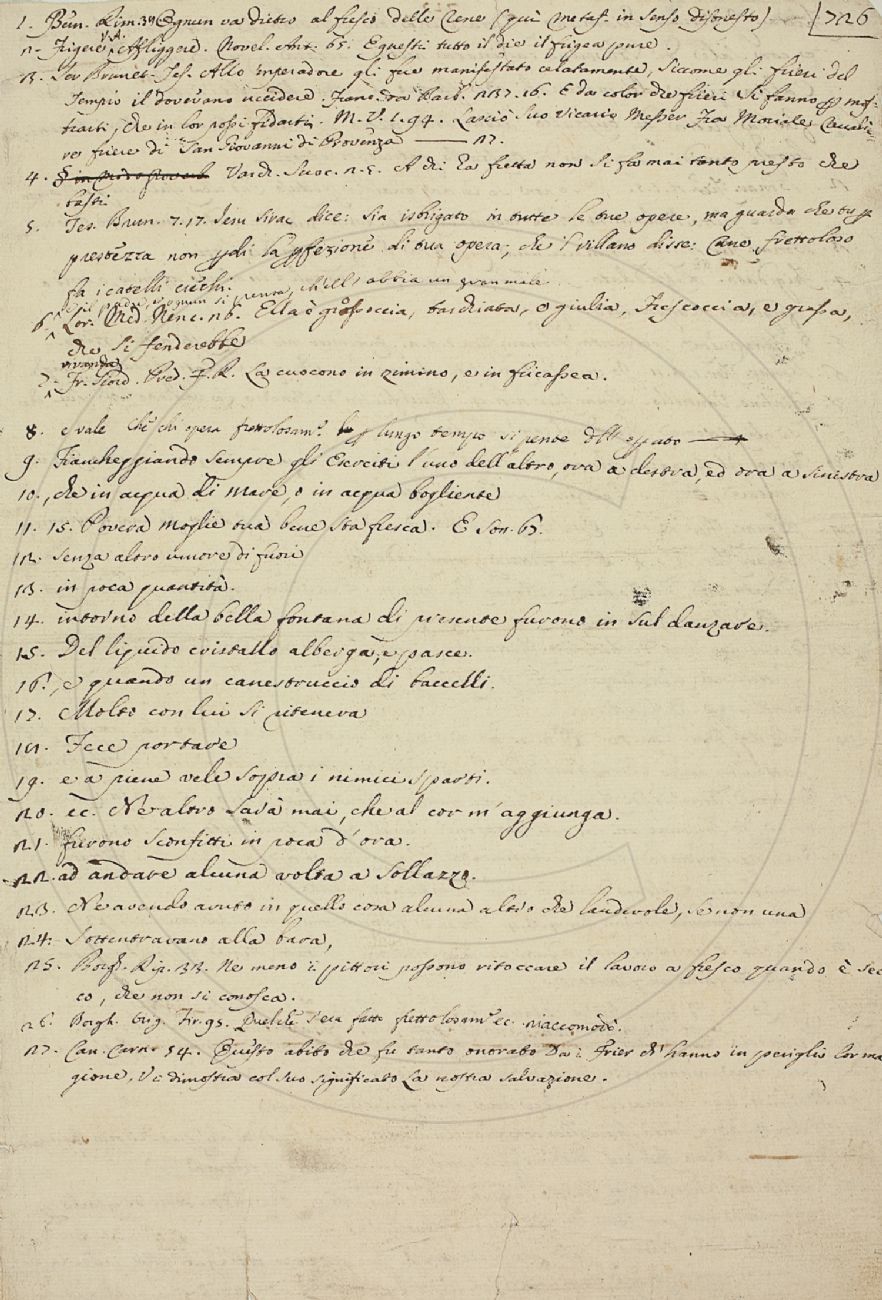 726
1. Burn. Rim. 39 Ognun va dietro al fresco delle Rene (quì metaf. in senso disonesto)
2. Frigere V.A. Affliggere. Novel. Ant. 65. E questi tutto il die il frigea pure.
3. Ser Brunet. Tes. Allo imperadore gli fue manifestato celatamente, siccome gli frieri del
Tempio il dovevano uccidere. Franc. da Barb. 237. 16. E da color che frieri Si fanno p mos-
trarti, che in lor possi fidarti. M. V. 1. 94. Lasciò suo Vicario Messer Fra Moriale Cavalie-
ro friere di San Giovanni di Provenza —— 27.
4. Varch. Suoc. 2. 5. A chi ha fretta non si fa mai tanto presto che
basti
5. Tes. Brun. 7. 17. Jesu Sirac dice: sia isbrigato in tutte le tue opere, ma guarda che tu p
prestezza non perdi la pfezione di tua opera; che 'l villano disse: Cane frettoloso
fa i catelli ciechi.
6. Lor. Med. Nenc. 26. Ella è grossoccia, tarchiata, e giulia, Frescoccia, e grassa,
che si fenderebbe
vivanda
7. Fr. Giord. Pred. P. R. La cuocono in zimino, e in fricassea.
8. e vale che chi opera frettolosam.e p lungo tempo si pente dell' operato ——
9. Fiancheggiando sempre gli Eserciti l'uno dell'altro, ora a destra, ed ora a sinistra
10. , che in acqua di mare, o in acqua bogliente
11. 15. Povera moglie tua bene sta fresca. E Son. 63.
12. senza altro umore di fuori
13. in poca quantità.
14. intorno della bella fontana di presente furono in sul danzare.
15. Del liquido cristallo alberga, e pasce.
16. , e quando un canestruccio di baccelli.
17. Molto con lui si riteneva
18. Fece portare
19. e a piene vele sopra i nimici sparti.
20. ec. Ne altro sarà mai, che al cor m'aggiunga.
21. furono sconfitti in poca d'ora.
22. ad andare alcuna volta a sollazzo.
23. Ne avendo avuto in quello cosa alcuna altro che laudevole, se non una
24. Sottentravano alla bara,
25. Borgh. Rip. 33. Ne meno i pittori possono ritoccare il lavoro a fresco quando è sec-
co, che non si conosca.
26. Borgh. Orig. Fir. 95. s'era fatto frettolosam.e ec. riaccomodò.
27. Can. Carn. 54. Questo abito che fu tanto onorato Da i Frier ch' hanno in periglio lor ma
gione, Vi dimostra col suo significato La nostra salvazione.